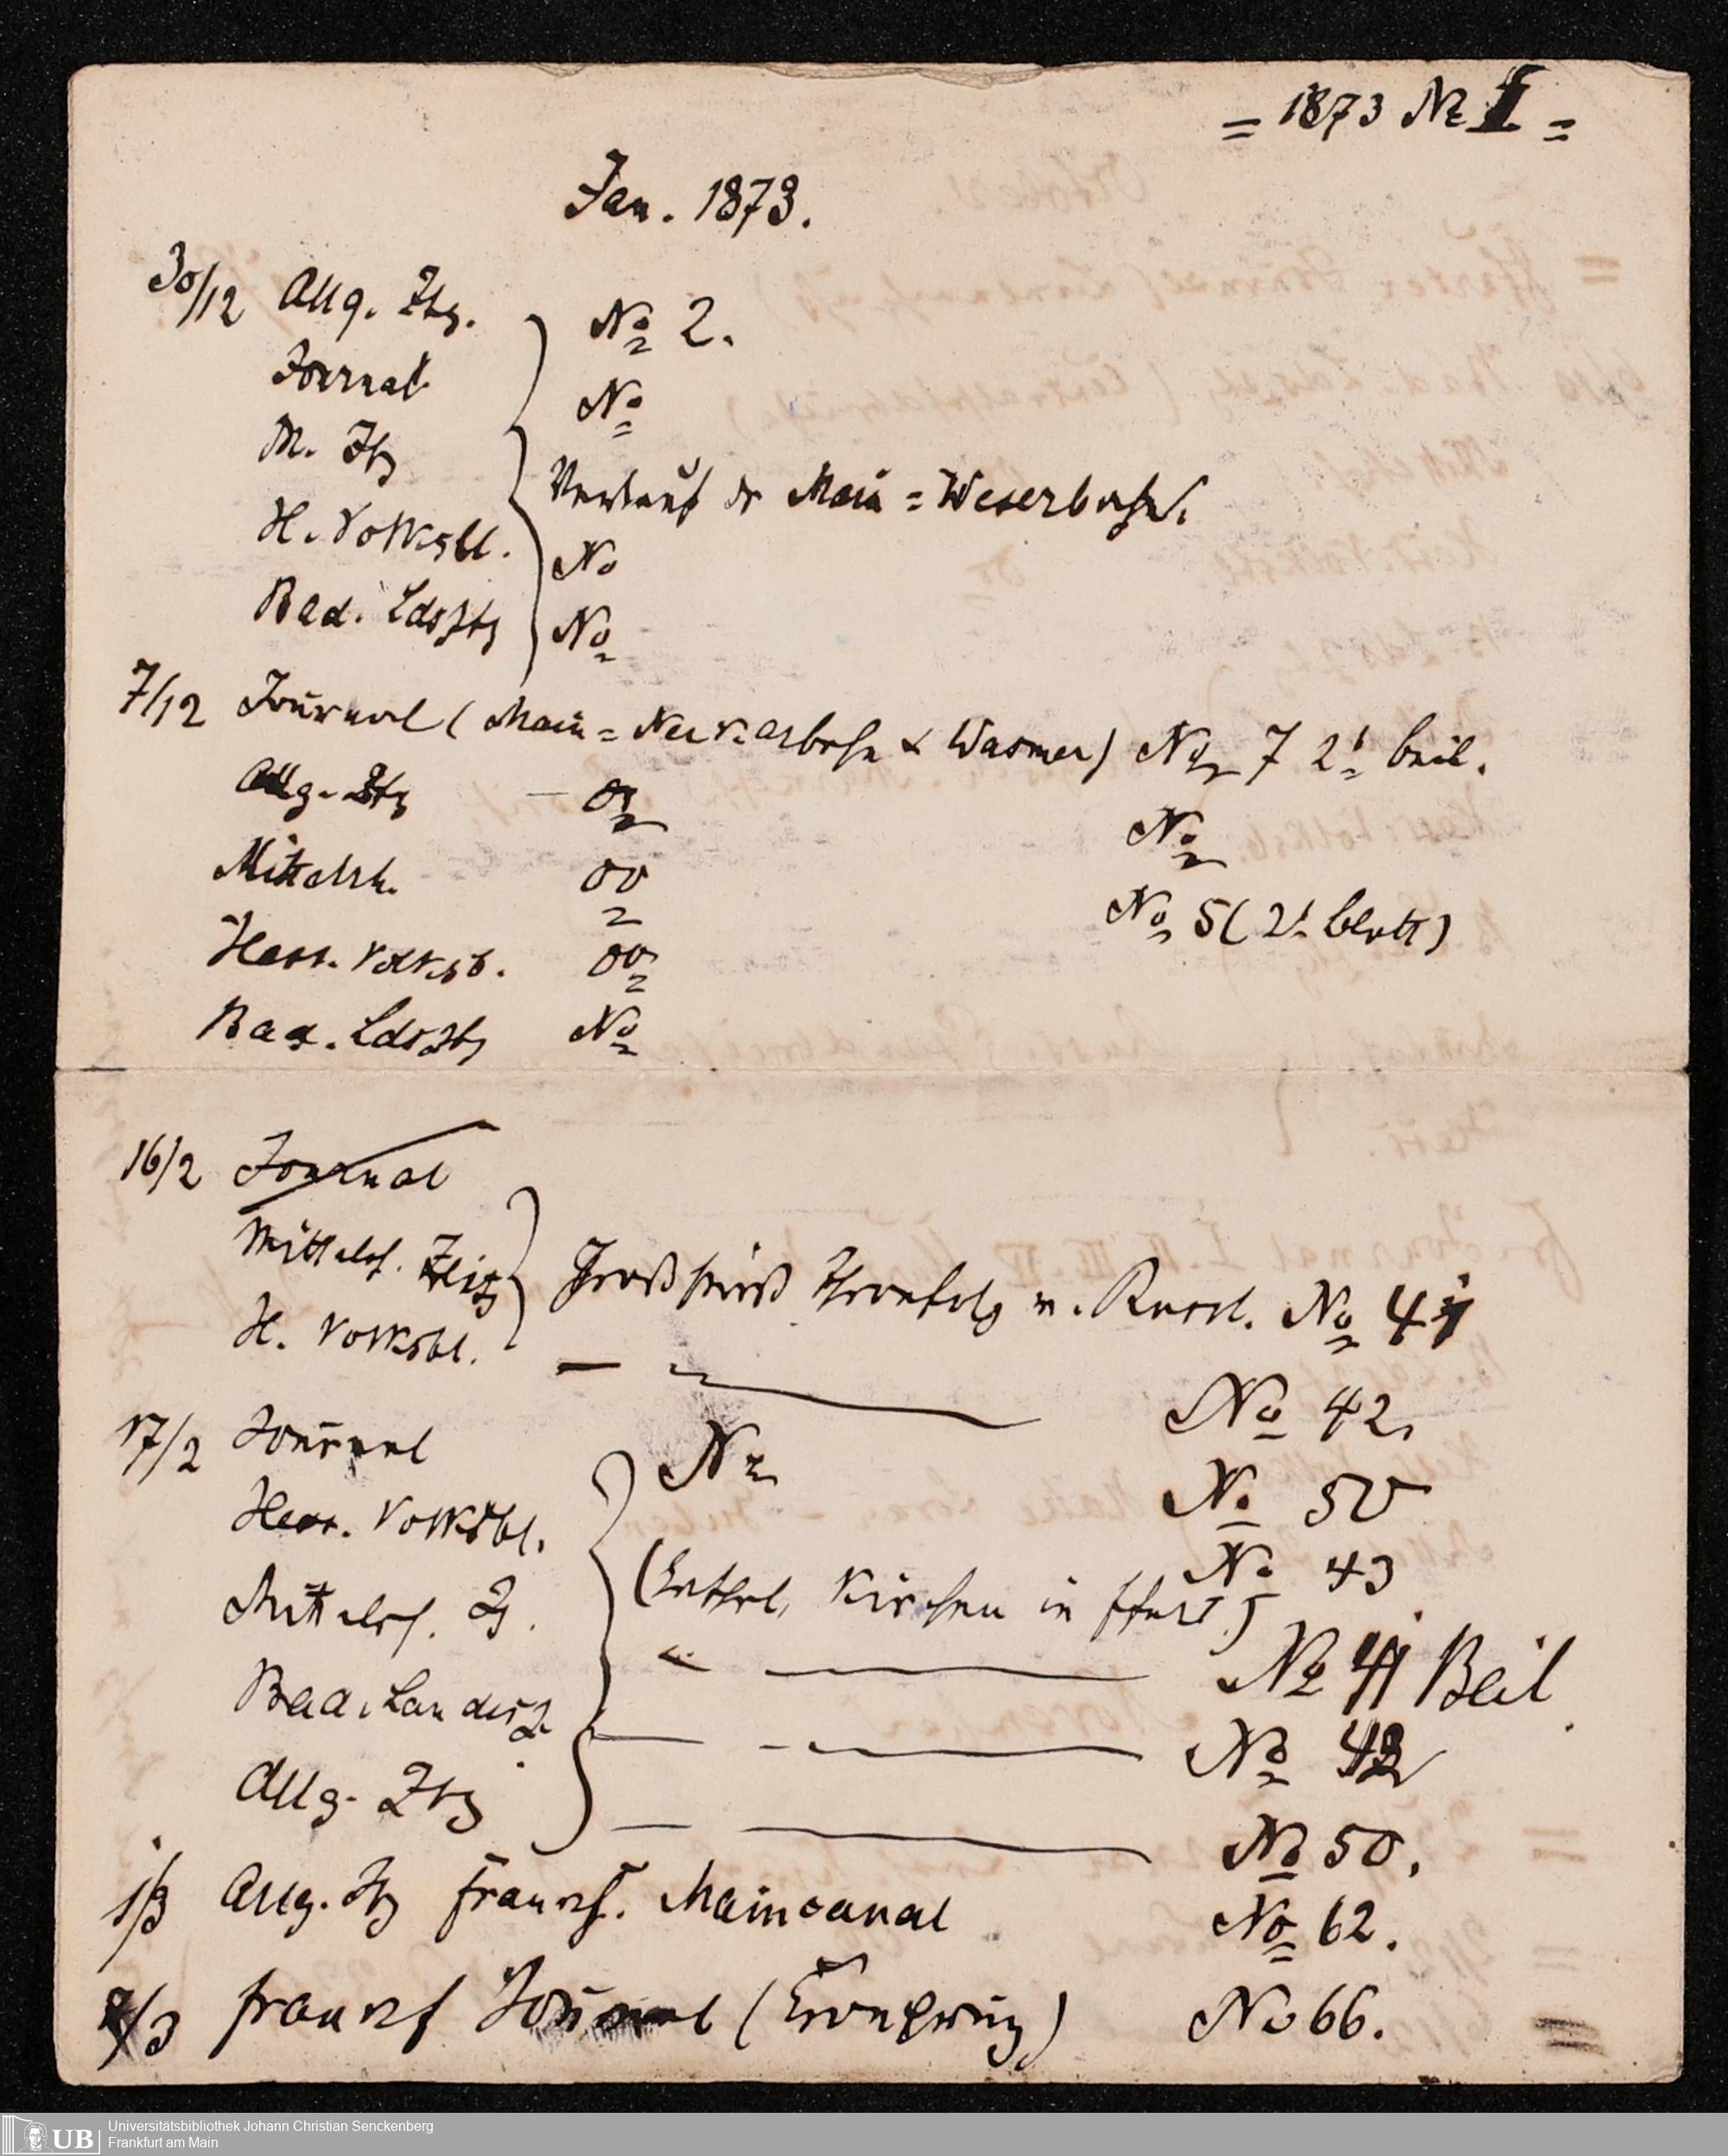 = 1873 No I =
Jan. 1873.
30/12 Allg. Ztg. No 2.
Journal No
M. Ztg Verkauf der Main=Weserbahn.
H. Volksbl. No
Bad. Ldsztg No
7/12 Journal (Main=Neckarbahn & Wasmer) No 7 2t Beil.
Allg. Ztg do No
Mittelrh. do No 5 (2t Blatt)
Hess. Volksb. do
Bad. Ldsztg No
16/2 Journal
Mittelrh. Ztg Großfürst Thronfolg v. Russl. No 41
H. Volksbl. No 42.
17/2 Journal No 50
Hess. Volksbl. No 43
Mittelrh. Z. (Kathol. Kirchen in Ffurt) No 41 Beil.
Bad. Landesz. No 42
Allg. Ztg No 50.
1/3 Allg. Ztg Frankf. Maincanal No 62.
7/3 Frankf Journal (Kronprinz) No 66.
Universitätsbibliothek Johann Christian Senckenberg
UB Frankfurt am Main